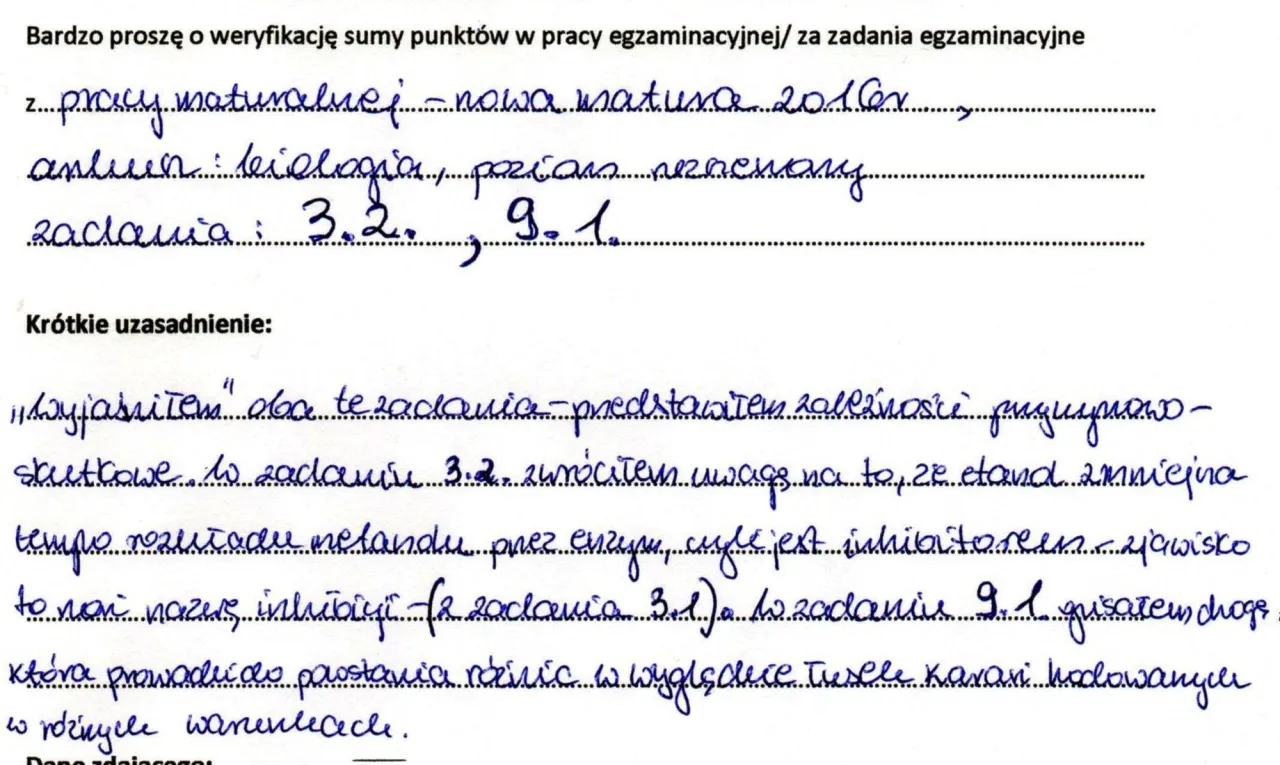 Bardzo proszę o weryfikację sumy punktów w pracy egzaminacyjnej/ za zadania egzaminacyjne
z pracy maturalnej – nowa matura 2016r ,
arkusz : biologia, poziom rozszerzony
zadania : 3.2. , 9.1.
Krótkie uzasadnienie:
„Wyjaśniłem" oba te zadania – przedstawiłem zależności przyczynowo-
skutkowe. W zadaniu 3.2. zwróciłem uwagę na to, że etanol zmniejsza
tempo rozkładu metanolu przez enzym, czyli jest inhibitorem – zjawisko
to nosi nazwę inhibicji – (z zadania 3.1). W zadaniu 9.1 opisałem drogę,
która prowadzi do powstania różnic w wyglądzie łusek karasi hodowanych
w różnych warunkach.
Dane zdającego: